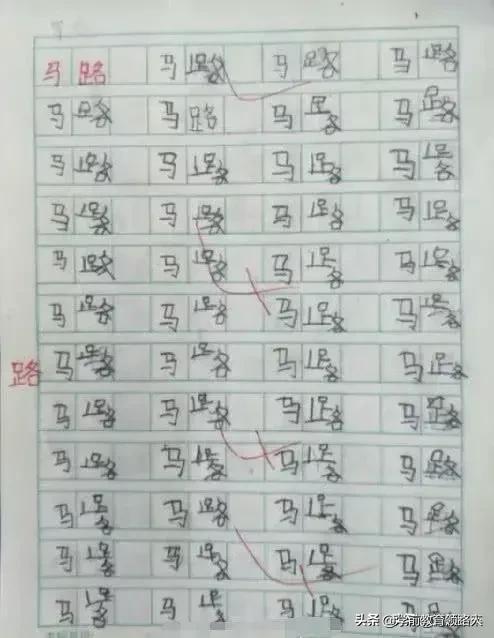 马路 马路 马路 马路
马路 马路 马路 马路
马路 马路 马路 马路
马路 马路 马路 马路
马路 马路 马路 马路
马路 马路 马路 马路
路 马路 马路 马路 马路
马路 马路 马路 马路
马路 马路 马路 马路
马路 马路 马路 马路
马路 马路 马路 马路
马路 马路 马路 马路
头条 @学前教育领路人